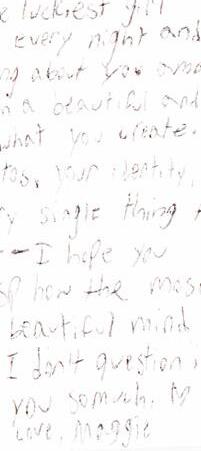 luckiest girl
every night and
about you
a beautiful and
what you create.
your identity,
single thing
- I hope you
how the mos
beautiful mind
I don't question
you so much.
Love, Maggie